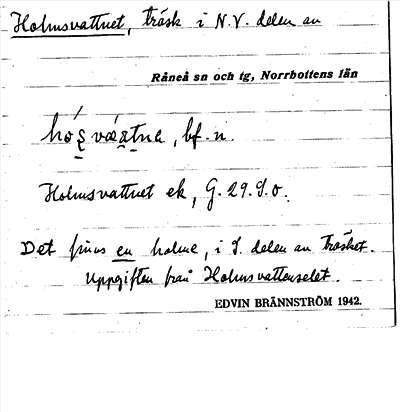 Holmsvattnet, träsk i N.V. delen av
Råneå sn och tg, Norrbottens län
bf. n.
Holmsvattnet ek, G. 29. S.o.
Det finns en holme, i S. delen av träsket.
Uppgiften från Holmsvattenselet.
EDVIN BRÄNNSTRÖM 1942.